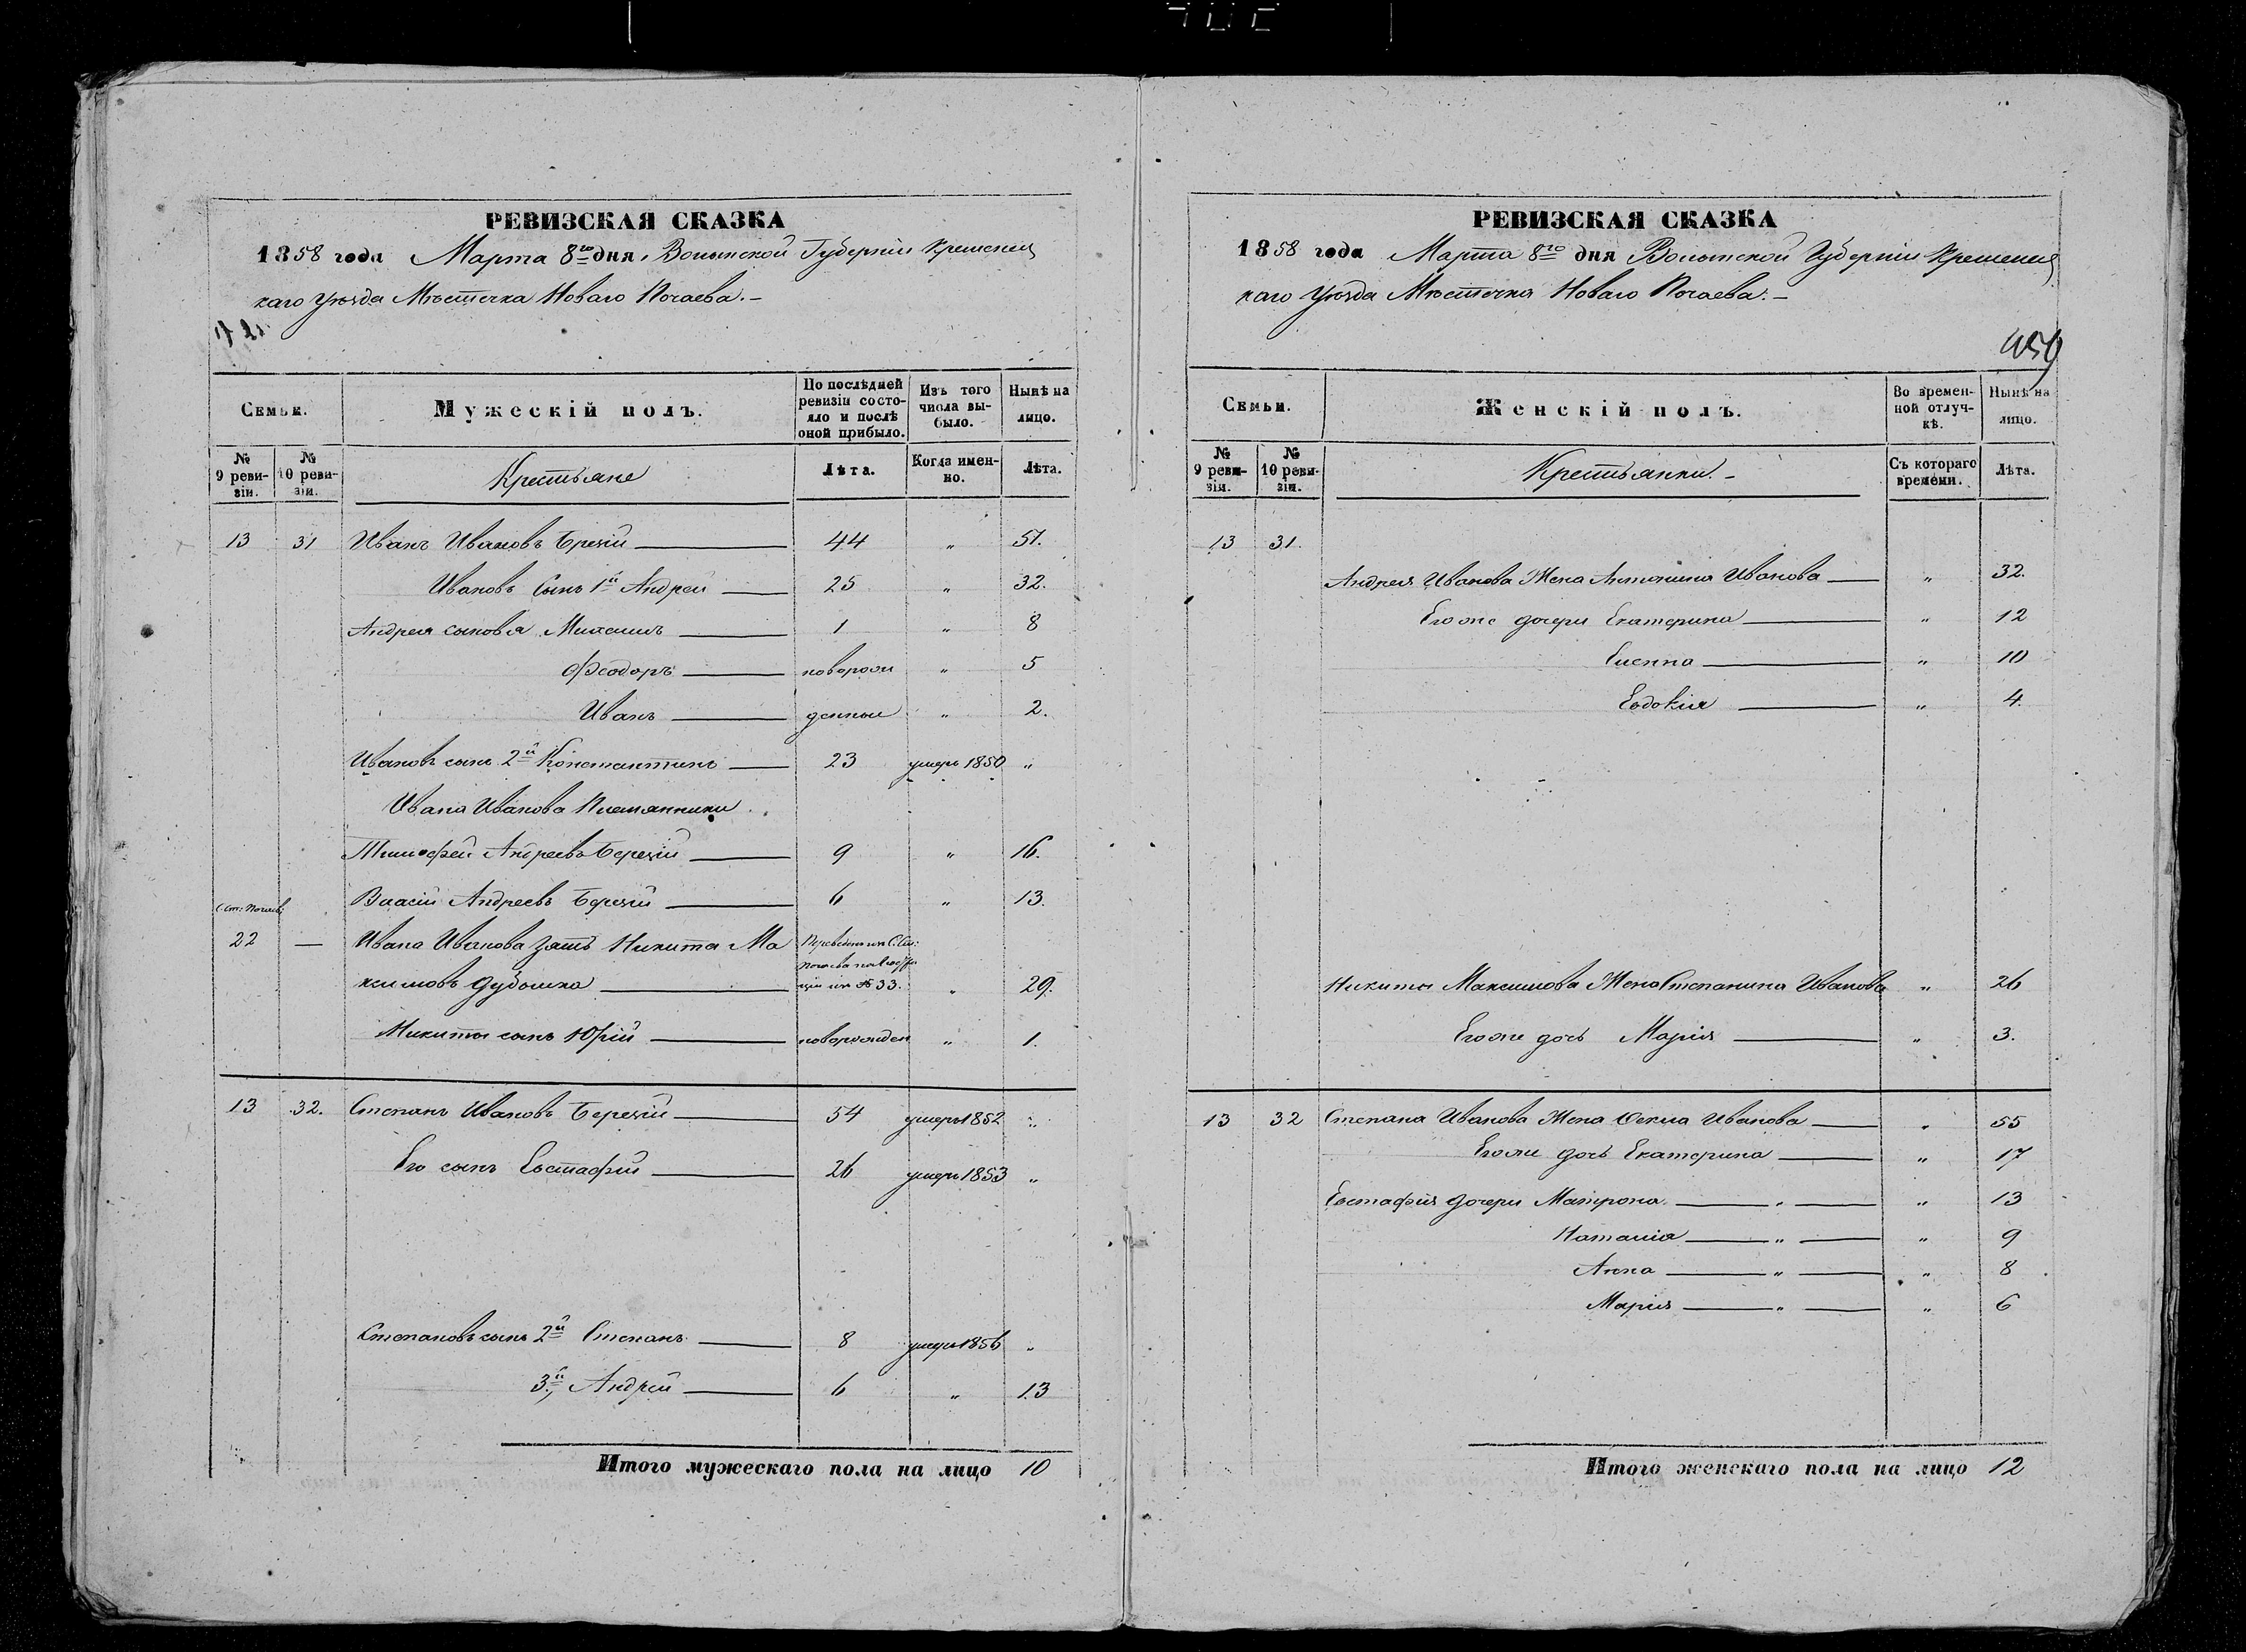 РЕВИЗСКАЯ СКАЗКА
1858 года Марта 8го дня Волынской Губерніи Кременец
каго уѣзда Мѣстечка Новаго Почаева.
Семьи. Мужескій полъ. По послѣдней ревизіи состояло и послѣ оной прибыло. Изъ того числа выбыло. Нынѣ на лицо.
№ 9 ревизіи. № 10 ревизіи. Крестьяне Лѣта. Когда именно. Лѣта.
13 31 Иванъ Ивановъ Брезій 44 " 51.
Ивановъ Сынъ 1й Андрей 25 " 32.
Андрея сыновья Михаилъ 1 " 8
Феодоръ новорож " 5
Иванъ денные " 2.
Ивановъ сынъ 2й Константинъ 23 умеръ 1850 "
Ивана Иванова Племянники
Тимофей Андреевъ Березій 9 " 16.
Власій Андреевъ Березій 6 " 13.
С. Ст: Почаев:
22 — Ивана Иванова зять Никита Ма Переведенъ изъ С. Ст:
Почаева
ксимовъ Дубышка № 33. " 29.
Микиты сынъ Юрій новорожден " 1.
13 32. Степанъ Ивановъ Березій 54 умеръ 1852 "
Его сынъ Евстафій 26 умеръ 1853 "
Степановъ сынъ 2й Степанъ 8 умеръ 1856 "
3й, Андрей 6 " 13
Итого мужескаго пола на лицо 10
РЕВИЗСКАЯ СКАЗКА
1858 года Марта 8го дня Волынской Губерніи Кременец
каго уѣзда Мѣстечка Новаго Почаева.
459
Семьи. Женскій полъ. Во временной отлучкѣ. Нынѣ на лицо.
№ 9 ревизіи. № 10 ревизіи. Крестьянки. Съ котораго времени. Лѣта.
13 31.
Андрея Иванова Жена Антонина Иванова " 32.
Его же дочери Екатерина " 12
Елена " 10
Евдокія " 4.
Никиты Максимова Жена Степанина Иванова " 26
Его же дочь Марія " 3.
13 32 Степана Иванова Жена Фекла Иванова " 55
Его же дочь Екатерина " 17
Евстафія дочери Матрона " " 13
Наталія " " 9
Анна " " 8
Марія " " 6
Итого женскаго пола на лицо 12